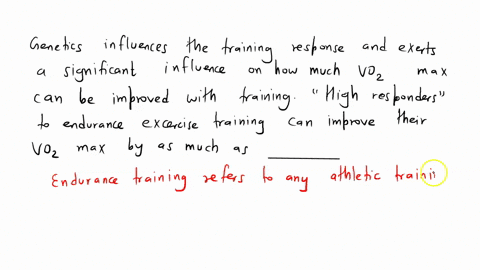 Genetics influences the training response and exerts
a significant influence on how much VO2 max
can be improved with training. "High responders"
to endurance excercise training can improve their
VO2 max by as much as __________
Endurance training refers to any athletic traini